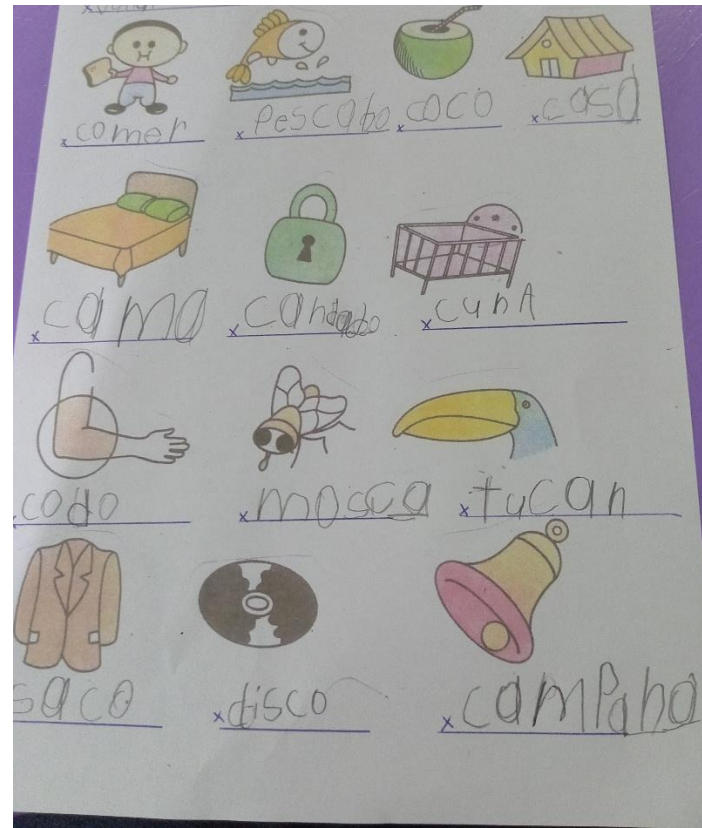 comer pescado coco casa
cama candado cuna
codo mosca tucan
saco disco campana